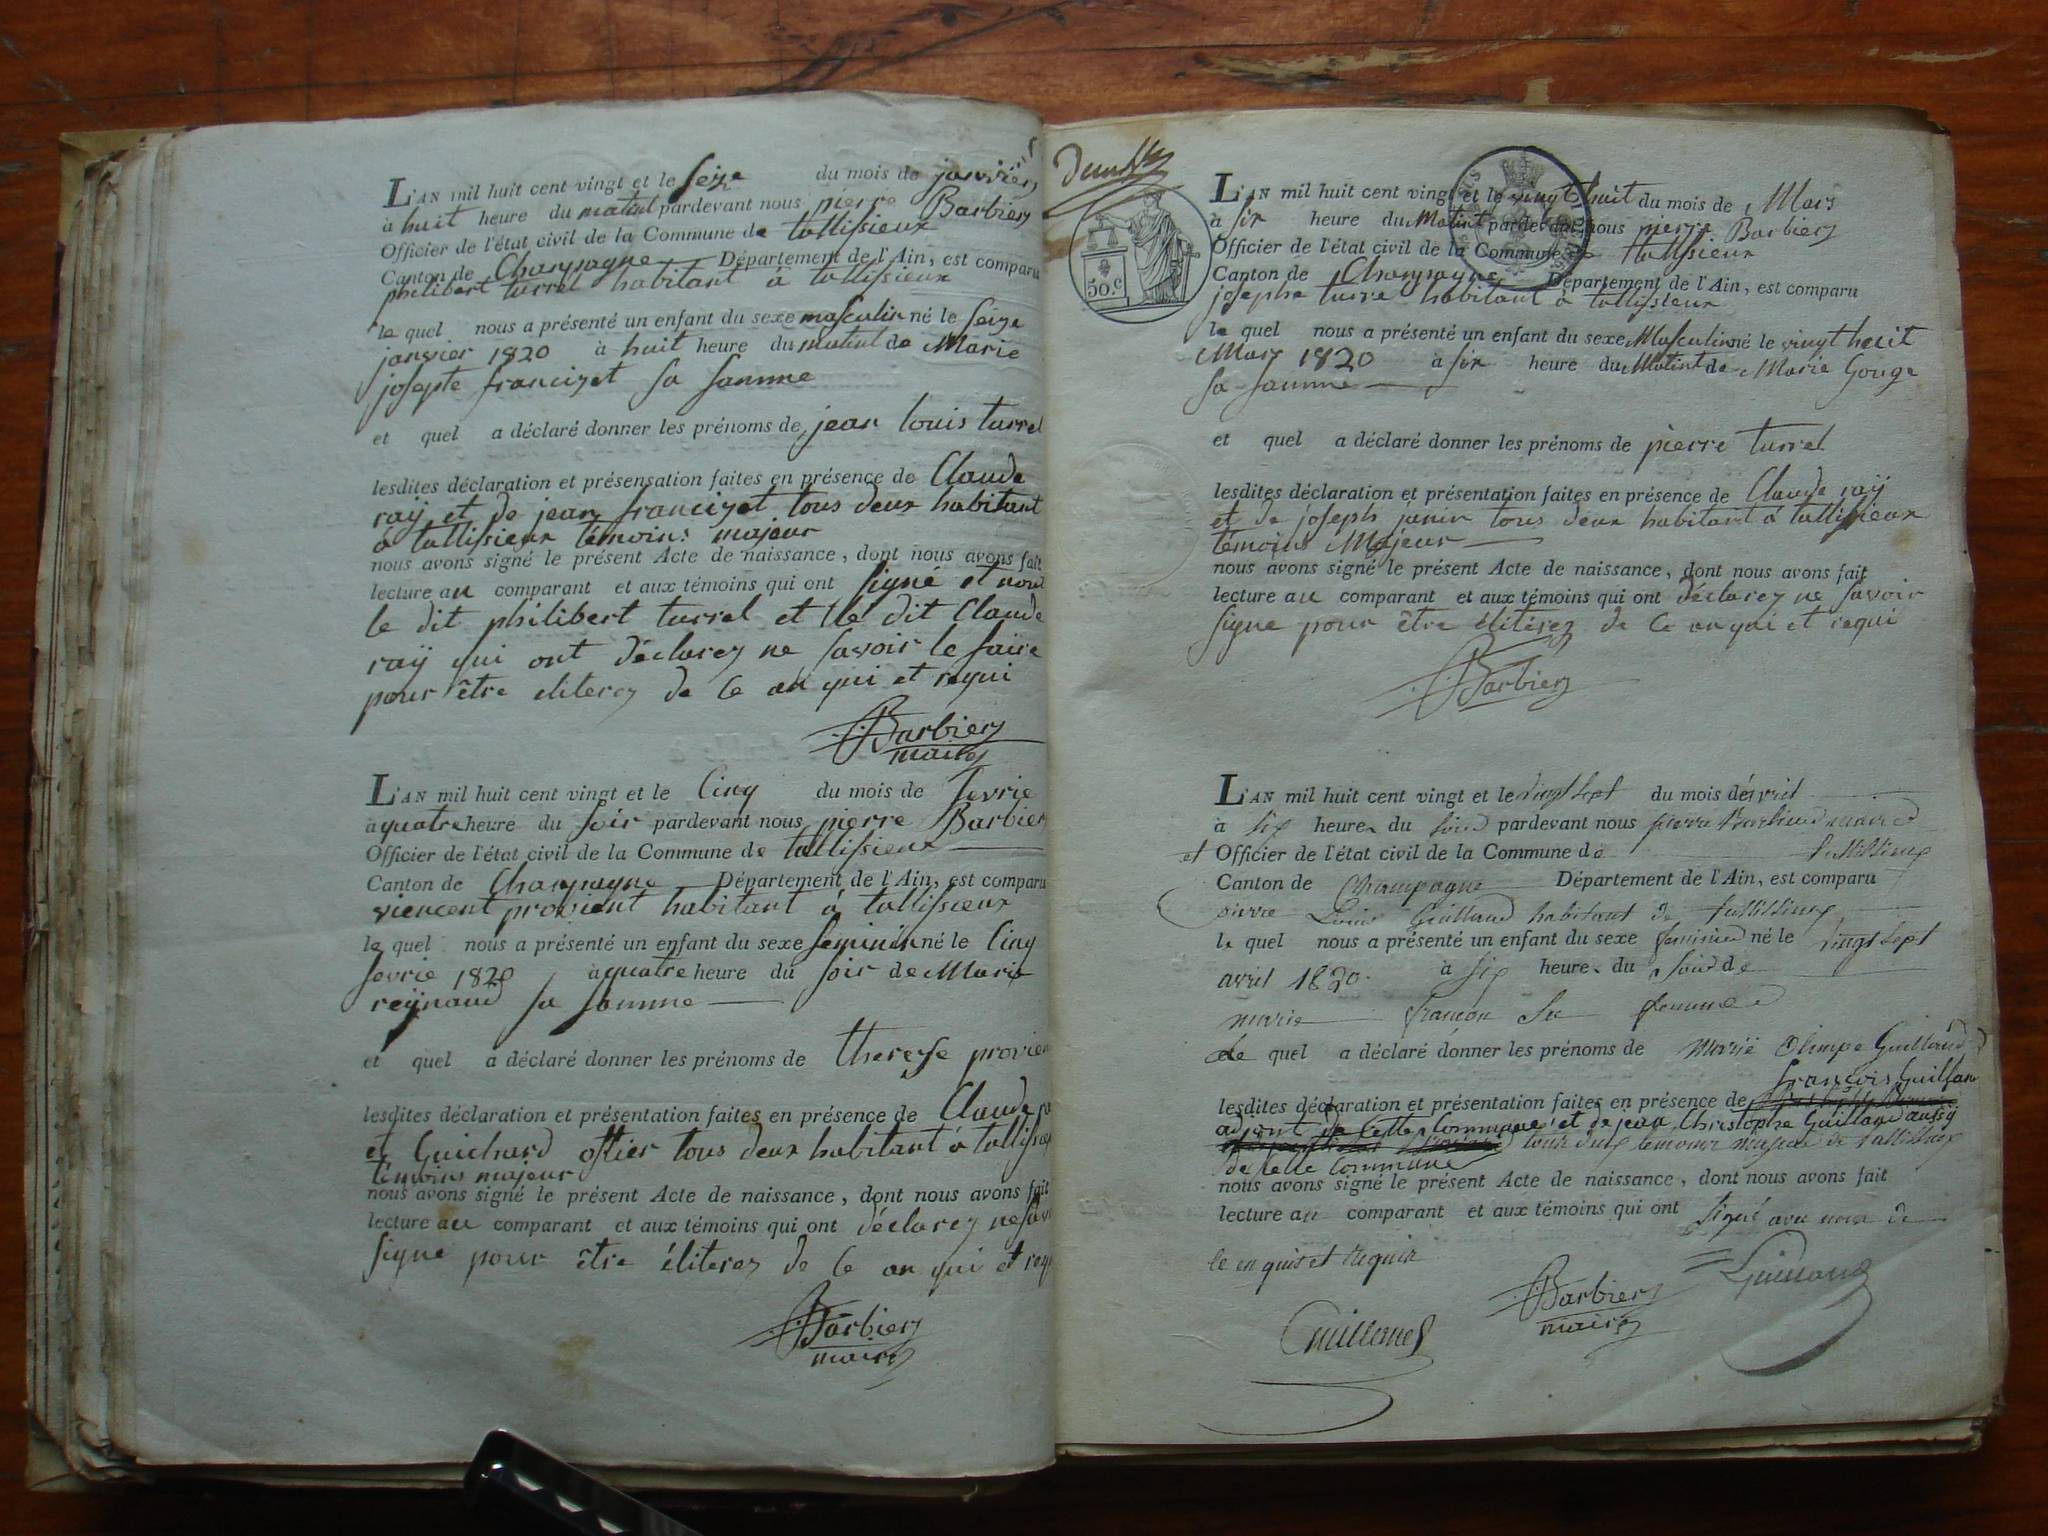 L'AN mil huit cent vingt et le seize du mois de janvier
à huit heure du matint pardevant nous pierre Barbiery
Officier de l'état civil de la Commune de tallissieux
Canton de Champagne Département de l'Ain, est comparu
philibert turrel habitant à tallissieux
le quel nous a présenté un enfant du sexe masculin né le seize
janvier 1820 à huit heure du matint de Marie
josepte francizet sa famme
et quel a déclaré donner les prénoms de jean louis turrel
lesdites déclaration et présensation faites en présence de Claude
raÿ et de jean francizet tous deux habitant
à tallissieux témoins majeur
nous avons signé le présent Acte de naissance, dont nous avons fait
lecture au comparant et aux témoins qui ont signé et nont
le dit philibert turrel et le dit Claude
raÿ qui ont déclarez ne savoir le faire
pour être eliterez de ce an qui et requi
Barbiery
maire
L'AN mil huit cent vingt et le Cinq du mois de fevrie
à quatre heure du soir pardevant nous pierre Barbier
Officier de l'état civil de la Commune de tallissieux
Canton de Champagne Département de l'Ain, est comparu
viencent provient habitant à tallissieux
le quel nous a présenté un enfant du sexe feminin né le Cinq
fevrie 1820 à quatre heure du soir de Marie
reÿnaud sa famme
et quel a déclaré donner les prénoms de therese provien
lesdites déclaration et présentation faites en présence de Claude
et Guichard ostier tous deux habitant à tallissieu
témoins majeur
nous avons signé le présent Acte de naissance, dont nous avons fait
lecture au comparant et aux témoins qui ont déclarez ne sav
signe pour être éliterez de ce an qui et requ
Barbiery
maire
50.c
L'AN mil huit cent vingt et le vingt huit du mois de Mars
à six heure du Matint pardevant nous pierre Barbiery
Officier de l'état civil de la Commune de tallisieux
Canton de Champagne Département de l'Ain, est comparu
josephe turre habitant à tallisieux
le quel nous a présenté un enfant du sexe Masculin né le vingt huit
Mars 1820 à six heure du Matint de Marie Gouge
sa famme
et quel a déclaré donner les prénoms de pierre turrel
lesdites déclaration et présentation faites en présence de Claude raÿ
et de joseph janin tous deux habitant à tallissieux
témoins Majeur
nous avons signé le présent Acte de naissance, dont nous avons fait
lecture au comparant et aux témoins qui ont déclarez ne savoir
signe pour être élitérez de ce an qui et requi
Barbiery
L'AN mil huit cent vingt et le vingt sept du mois de avril
à six heure du soir pardevant nous pierre Barbier maire
et Officier de l'état civil de la Commune de tallissieux
Canton de Champagne Département de l'Ain, est comparu
pierre Louis Guilland habitant de tallissieux
le quel nous a présenté un enfant du sexe feminin né le vingt sept
avril 1820 à six heure du soir de
marie françon sa femme
le quel a déclaré donner les prénoms de marie Olimpe Guilland
françois Guillan
lesdites déclaration et présentation faites en présence de
adjoint de Cette Commune et de jean Christophe Guilland aussy
tous deux temoins majeur de tallissieux
de Cette Commune
nous avons signé le présent Acte de naissance, dont nous avons fait
lecture au comparant et aux témoins qui ont signé avec nous de
ce en quis et requir
Guilland
Barbiery
maire
Guilland